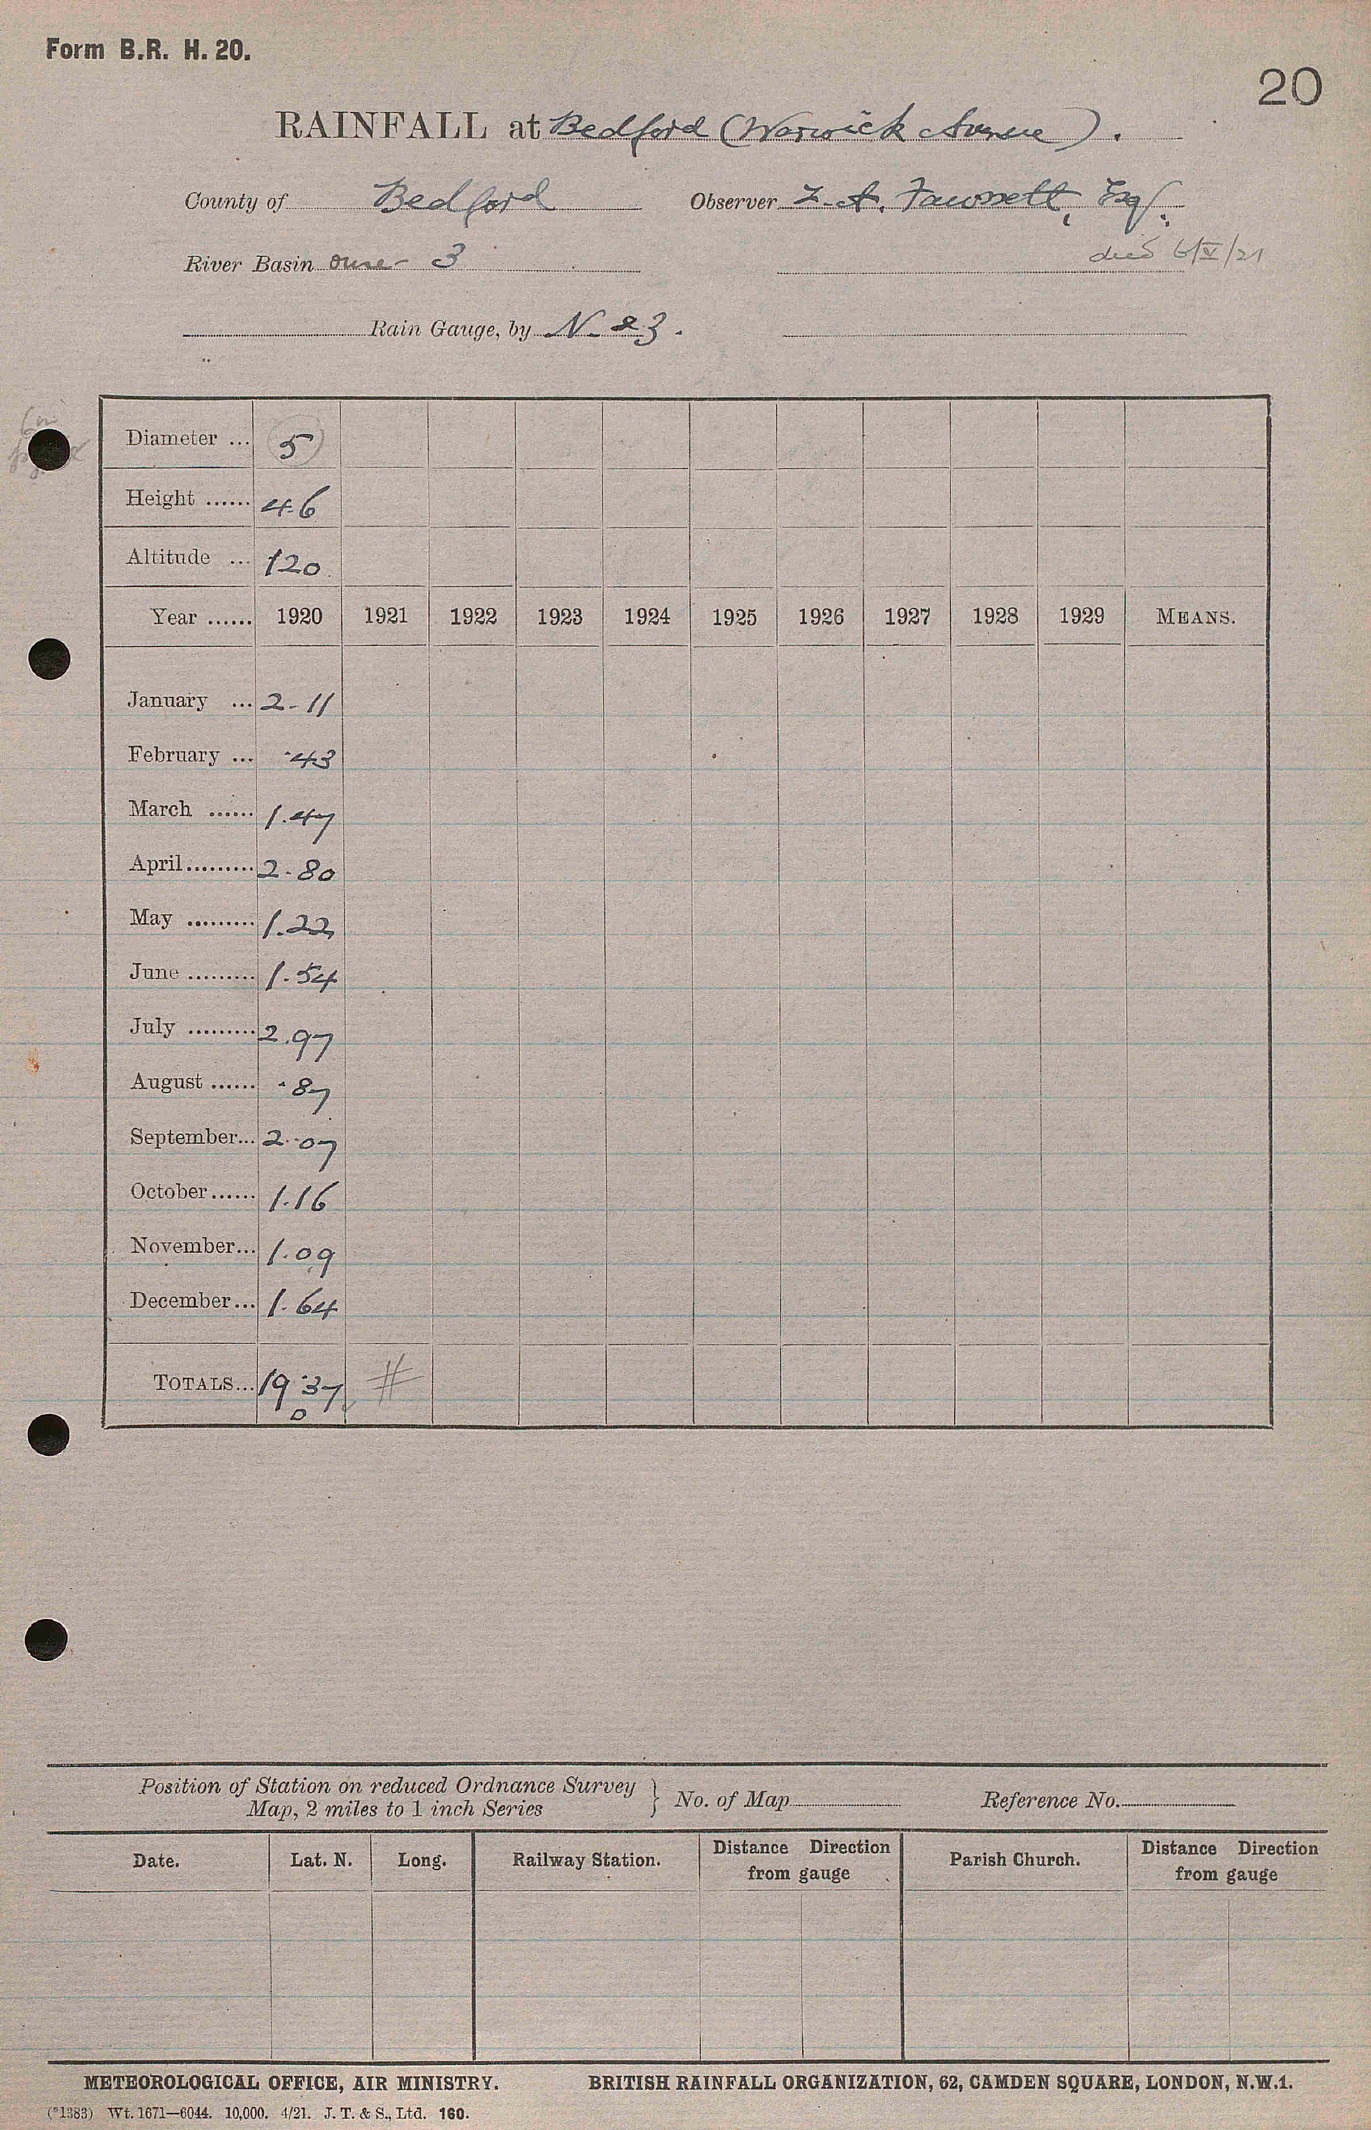 Form B.R. H. 20.
20
RAINFALL at Bedford (Warwick Avenue).
County of Bedford Observer Z. A. Fawssett, Esq.
River Basin Ouse - 3 died 6/V/21
Rain Gauge, by N. & Z.
Diameter ... 5
Height ...... 4.6
Altitude ... 120
Year ...... 1920 1921 1922 1923 1924 1925 1926 1927 1928 1929 MEANS.
January ... 2.11
February ... .43
March ...... 1.47
April ......... 2.80
May ......... 1.22
June ......... 1.54
July ......... 2.97
August ...... .87
September... 2.07
October ...... 1.16
November... 1.09
December... 1.64
TOTALS... 19.37 #
Position of Station on reduced Ordnance Survey
Map, 2 miles to 1 inch Series } No. of Map Reference No.
Date. Lat. N. Long. Railway Station. Distance Direction from gauge Parish Church. Distance Direction from gauge
METEOROLOGICAL OFFICE, AIR MINISTRY. BRITISH RAINFALL ORGANIZATION, 62, CAMDEN SQUARE, LONDON, N.W.1.
(*1383) Wt. 1671—6044. 10,000. 4/21. J. T. & S., Ltd. 160.